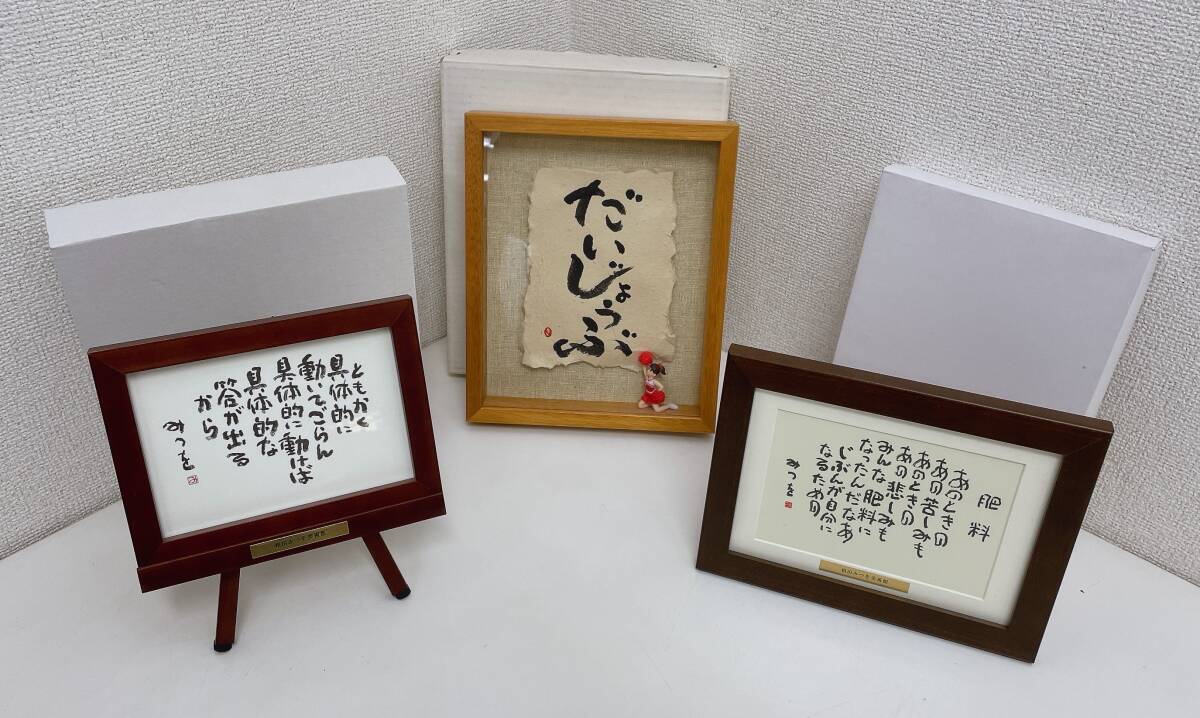 ともかく
具体的に
動いてごらん
具体的に動けば
具体的な
答が出る
から
みつを
相田みつを美術館
だいじょうぶ
肥料
あのときの
あの苦しみも
あのときの
あの悲しみも
みんな肥料に
なったんだなあ
じぶんが自分に
なるための
みつを
相田みつを美術館